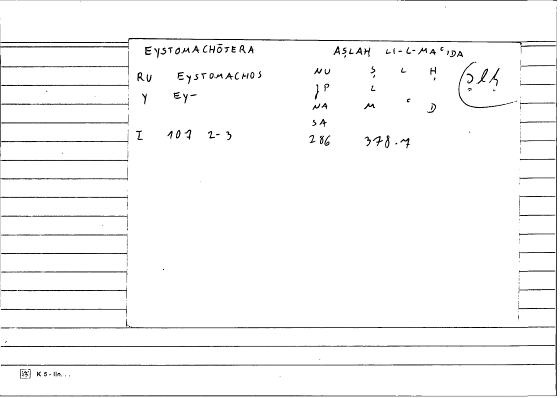 EYSTOMACHŌTERA AṢLAḤ LI-L-MAᶜIDA
RU EYSTOMACHOS NU Ṣ L Ḥ
ṣlḥ
Y EY- JP L
NA M ᶜ D
SA
I 107 2-3 286 378.7
K 5 - lin. . .